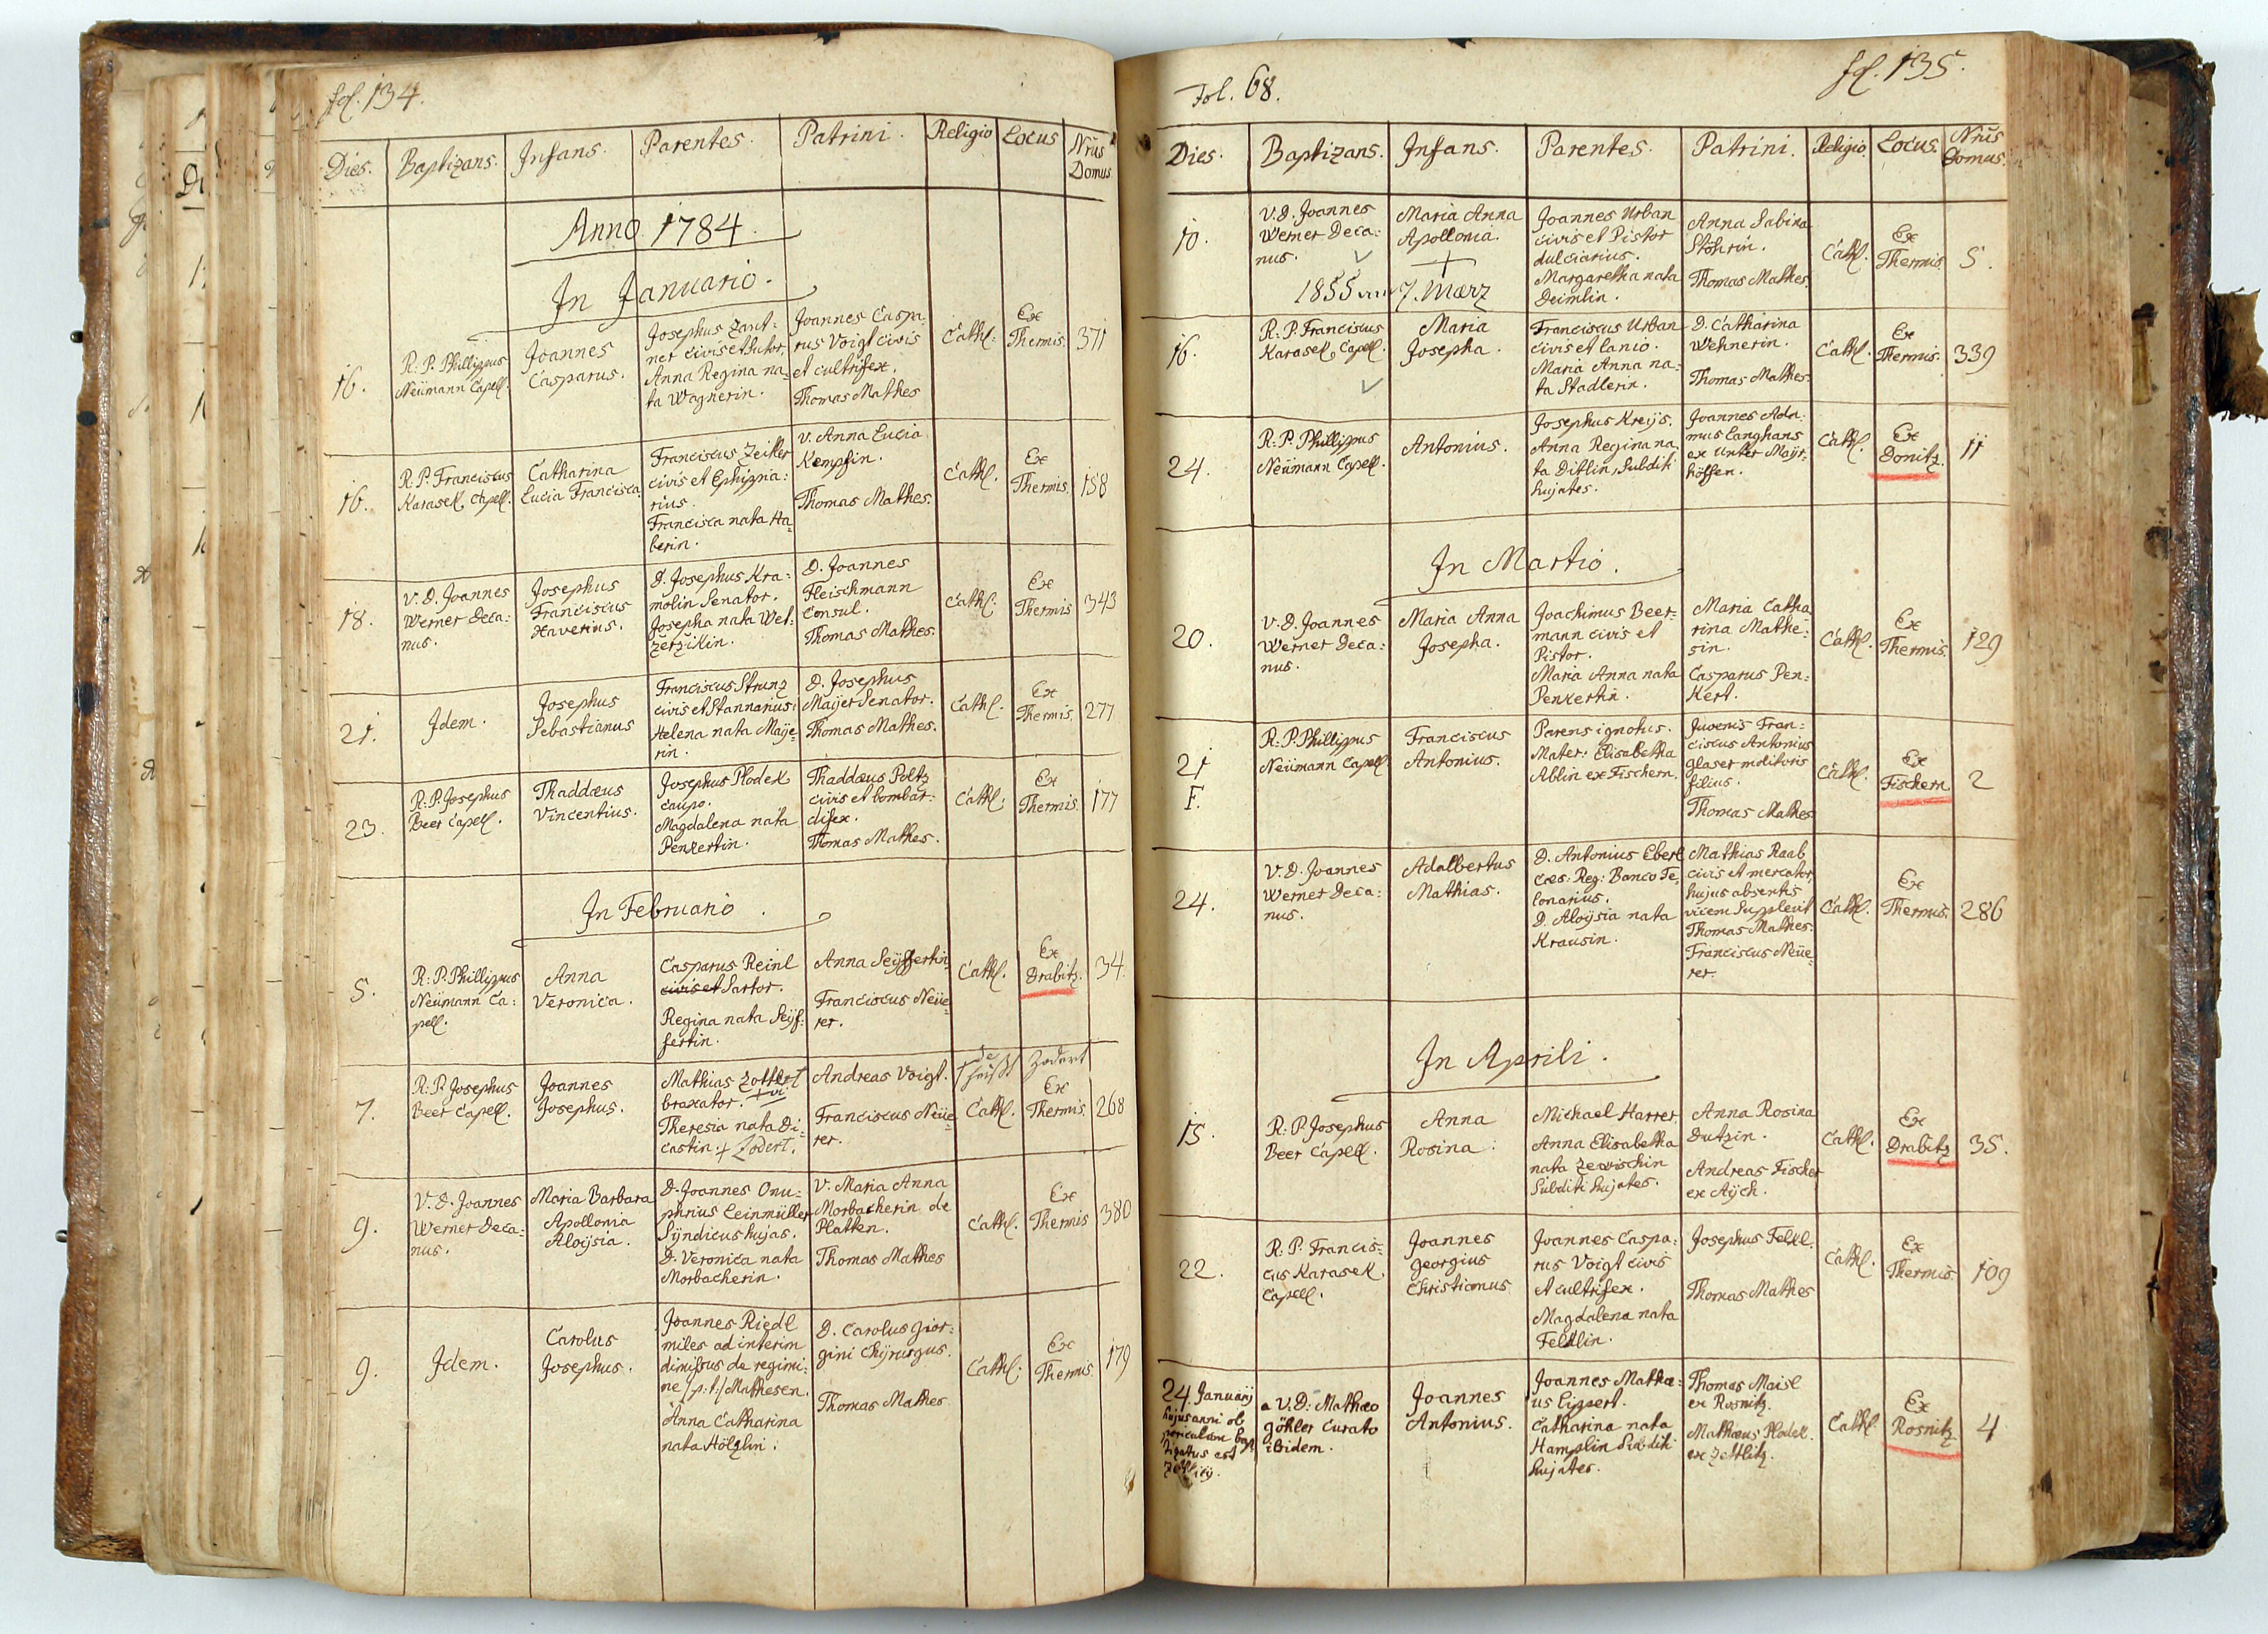 fol. 134.
Dies. Baptizans. Infans. Parentes. Patrini. Religio Locus Nrus Domus
Anno 1784.
In Januario.
16.
R: P. Phillippus
Neümann Capell.
Joannes
Casparus.
Josephus Zant:
ner civis et Sutor,
Anna Regina na=
ta Wagnerin.
Joannes Caspa
rus Voigt civis
et cultrifex.
Thomas Mathes
Cathl:
Ex
Thermis.
371
16.
R. P. Franciscus
Karasek Capell.
Catharina
Lucia Francisca
Franciscus Zeitler
civis et Ephippia:
rius.
Francisca nata Ha=
berin.
V. Anna Lucia
Kempfin.
Thomas Mathes.
Cathl.
Ex
Thermis.
158
18.
V. D. Joannes
Werner Deca:
nus.
Josephus
Franciscus
Xaverius.
D. Josephus Kra:
molin Senator.
Josepha nata Wet:
zerzikin.
D. Joannes
Fleischmann
Consul.
Thomas Mathes.
Cathl:
Ex
Thermis
343
21.
Idem.
Josephus
Sebastianus
Franciscus Strunz
civis et Stannarius:
Helena nata Maÿe=
rin.
D. Josephus
Maÿer Senator.
Thomas Mathes.
Cathl.
Ex
Thermis.
277
23.
R: P. Josephus
Beer Capell.
Thaddæus
Vincentius.
Josephus Plodek
caupo.
Magdalena nata
Penkertin.
Thaddæus Poltz
civis et bombar:
difex.
Thomas Mathes.
Cathl:
Ex
Thermis
177
In Februario.
5.
R: P. Phillippus
Neümann Ca:
pell.
Anna
Veronica.
Casparus Reinl
civis et Sartor.
Regina nata Seÿf:
fertin.
Anna Seÿffertin
Franciscus Neüe=
rer.
Cathl.
Ex
Drabitz.
34.
7.
R: P. Josephus
Beer Capell.
Joannes
Josephus.
Mathias Zottert
braxator.
Theresia nata Di=
castin + Zodert.
Andreas Voigt.
Franciscus Neüe=
rer.
heißt Zodert
Cathl.
Ex
Thermis.
268
9.
V. D. Joannes
Werner Deca=
nus.
Maria Barbara
Apollonia
Aloÿsia.
D. Joannes Onu=
phrius Leinmüller
Sÿndicus hujas.
D. Veronica nata
Morbacherin.
V. Maria Anna
Morbacherin de
Platten.
Thomas Mathes
Cathl.
Ex
Thermis
380
9.
Idem.
Carolus
Josephus.
Joannes Riedl
miles ad interim
dimissus de regimi:
ne /p: t:/ Mathesen.
Anna Catharina
nata Hölzlin.
D. Carolus Gior:
gini Chÿrurgus.
Thomas Mathes
Cathl:
Ex
Thermis.
179
Fol. 68.
fol. 135.
Dies. Baptizans. Infans. Parentes. Patrini. Religio. Locus. Nrus Domus.
10.
V. D. Joannes
Werner Deca:
nus.
Maria Anna
Apollonia.
+
1855 am 7. März
Joannes Urban
civis et Pistor
dulciarius.
Margaretha nata
Deimlin.
Anna Sabina
Stöhrin.
Thomas Mathes.
Cathl.
Ex
Thermis.
5.
16.
R: P. Franciscus
Karasek, Capell.
Maria
Josepha.
Franciscus Urban
civis et Lanio.
Maria Anna na:
ta Stadlerin.
D. Catharina
Wehnerin.
Thomas Mathes.
Cathl.
Ex
Thermis.
339
24.
R: P. Phillippus
Neümann Capell.
Antonius.
Josephus Kreÿs.
Anna Regina na
ta Ditlin, Subditi
hujates.
Joannes Ada:
mus Langhans
ex Unter Maÿr:
höffen.
Cathl.
Ex
Donitz.
11
In Martio.
20.
V. D. Joannes
Werner Deca:
nus.
Maria Anna
Josepha.
Joachimus Beer:
mann civis et
Pistor.
Maria Anna nata
Penkertin.
Maria Catha
rina Mathe:
sin.
Casparus Pen:
kert.
Cathl.
Ex
Thermis.
129
21
F.
R: P. Phillippus
Neümann Capell
Franciscus
Antonius.
Parens ignotus.
Mater: Elisabetha
Ablin ex Fischern.
Juvenis Fran=
ciscus Antonius
Glaser molitoris
filius.
Thomas Mathes
Cathl.
Ex
Fischern
2
24.
V. D. Joannes
Werner Deca:
nus.
Adalbertus
Mathias.
D. Antonius Eberl
Cæs: Reg: Banco Te,
lonarius.
D. Aloÿsia nata
Krausin.
Mathias Raab
civis et mercator,
hujus absentis
vicem supplevit
Thomas Mathes.
Franciscus Neüe=
rer.
Cathl.
Ex
Thermis.
286
In Aprili.
15.
R: P. Josephus
Beer Capell.
Anna
Rosina.
Michael Harrer.
Anna Elisabetha
nata Zewischin
Subditi hujates.
Anna Rosina
Dutzin.
Andreas Fischer
ex Aÿch.
Cathl.
Ex
Drabitz
35.
22.
R: P. Francis=
cus Karasek.
Capell.
Joannes
Georgius
Christianus
Joannes Caspa:
rus Voigt civis
et cultrifex.
Magdalena nata
Felklin.
Josephus Felkl.
Thomas Mathes
Cathl.
Ex
Thermis.
109
24 Januarij
hujus anni ob
periculum bap
tizatus est
a V. D: Mathæo
Göhler Curato
ibidem.
Joannes
Antonius.
Joannes Mathæ:
us Lippert.
Catharina nata
Hamplin Subditi
hujates.
Thomas Maisl
ex Rosnitz.
Mathæus Plodek
ex Zettlitz.
Cathl
Ex
Rosnitz
4